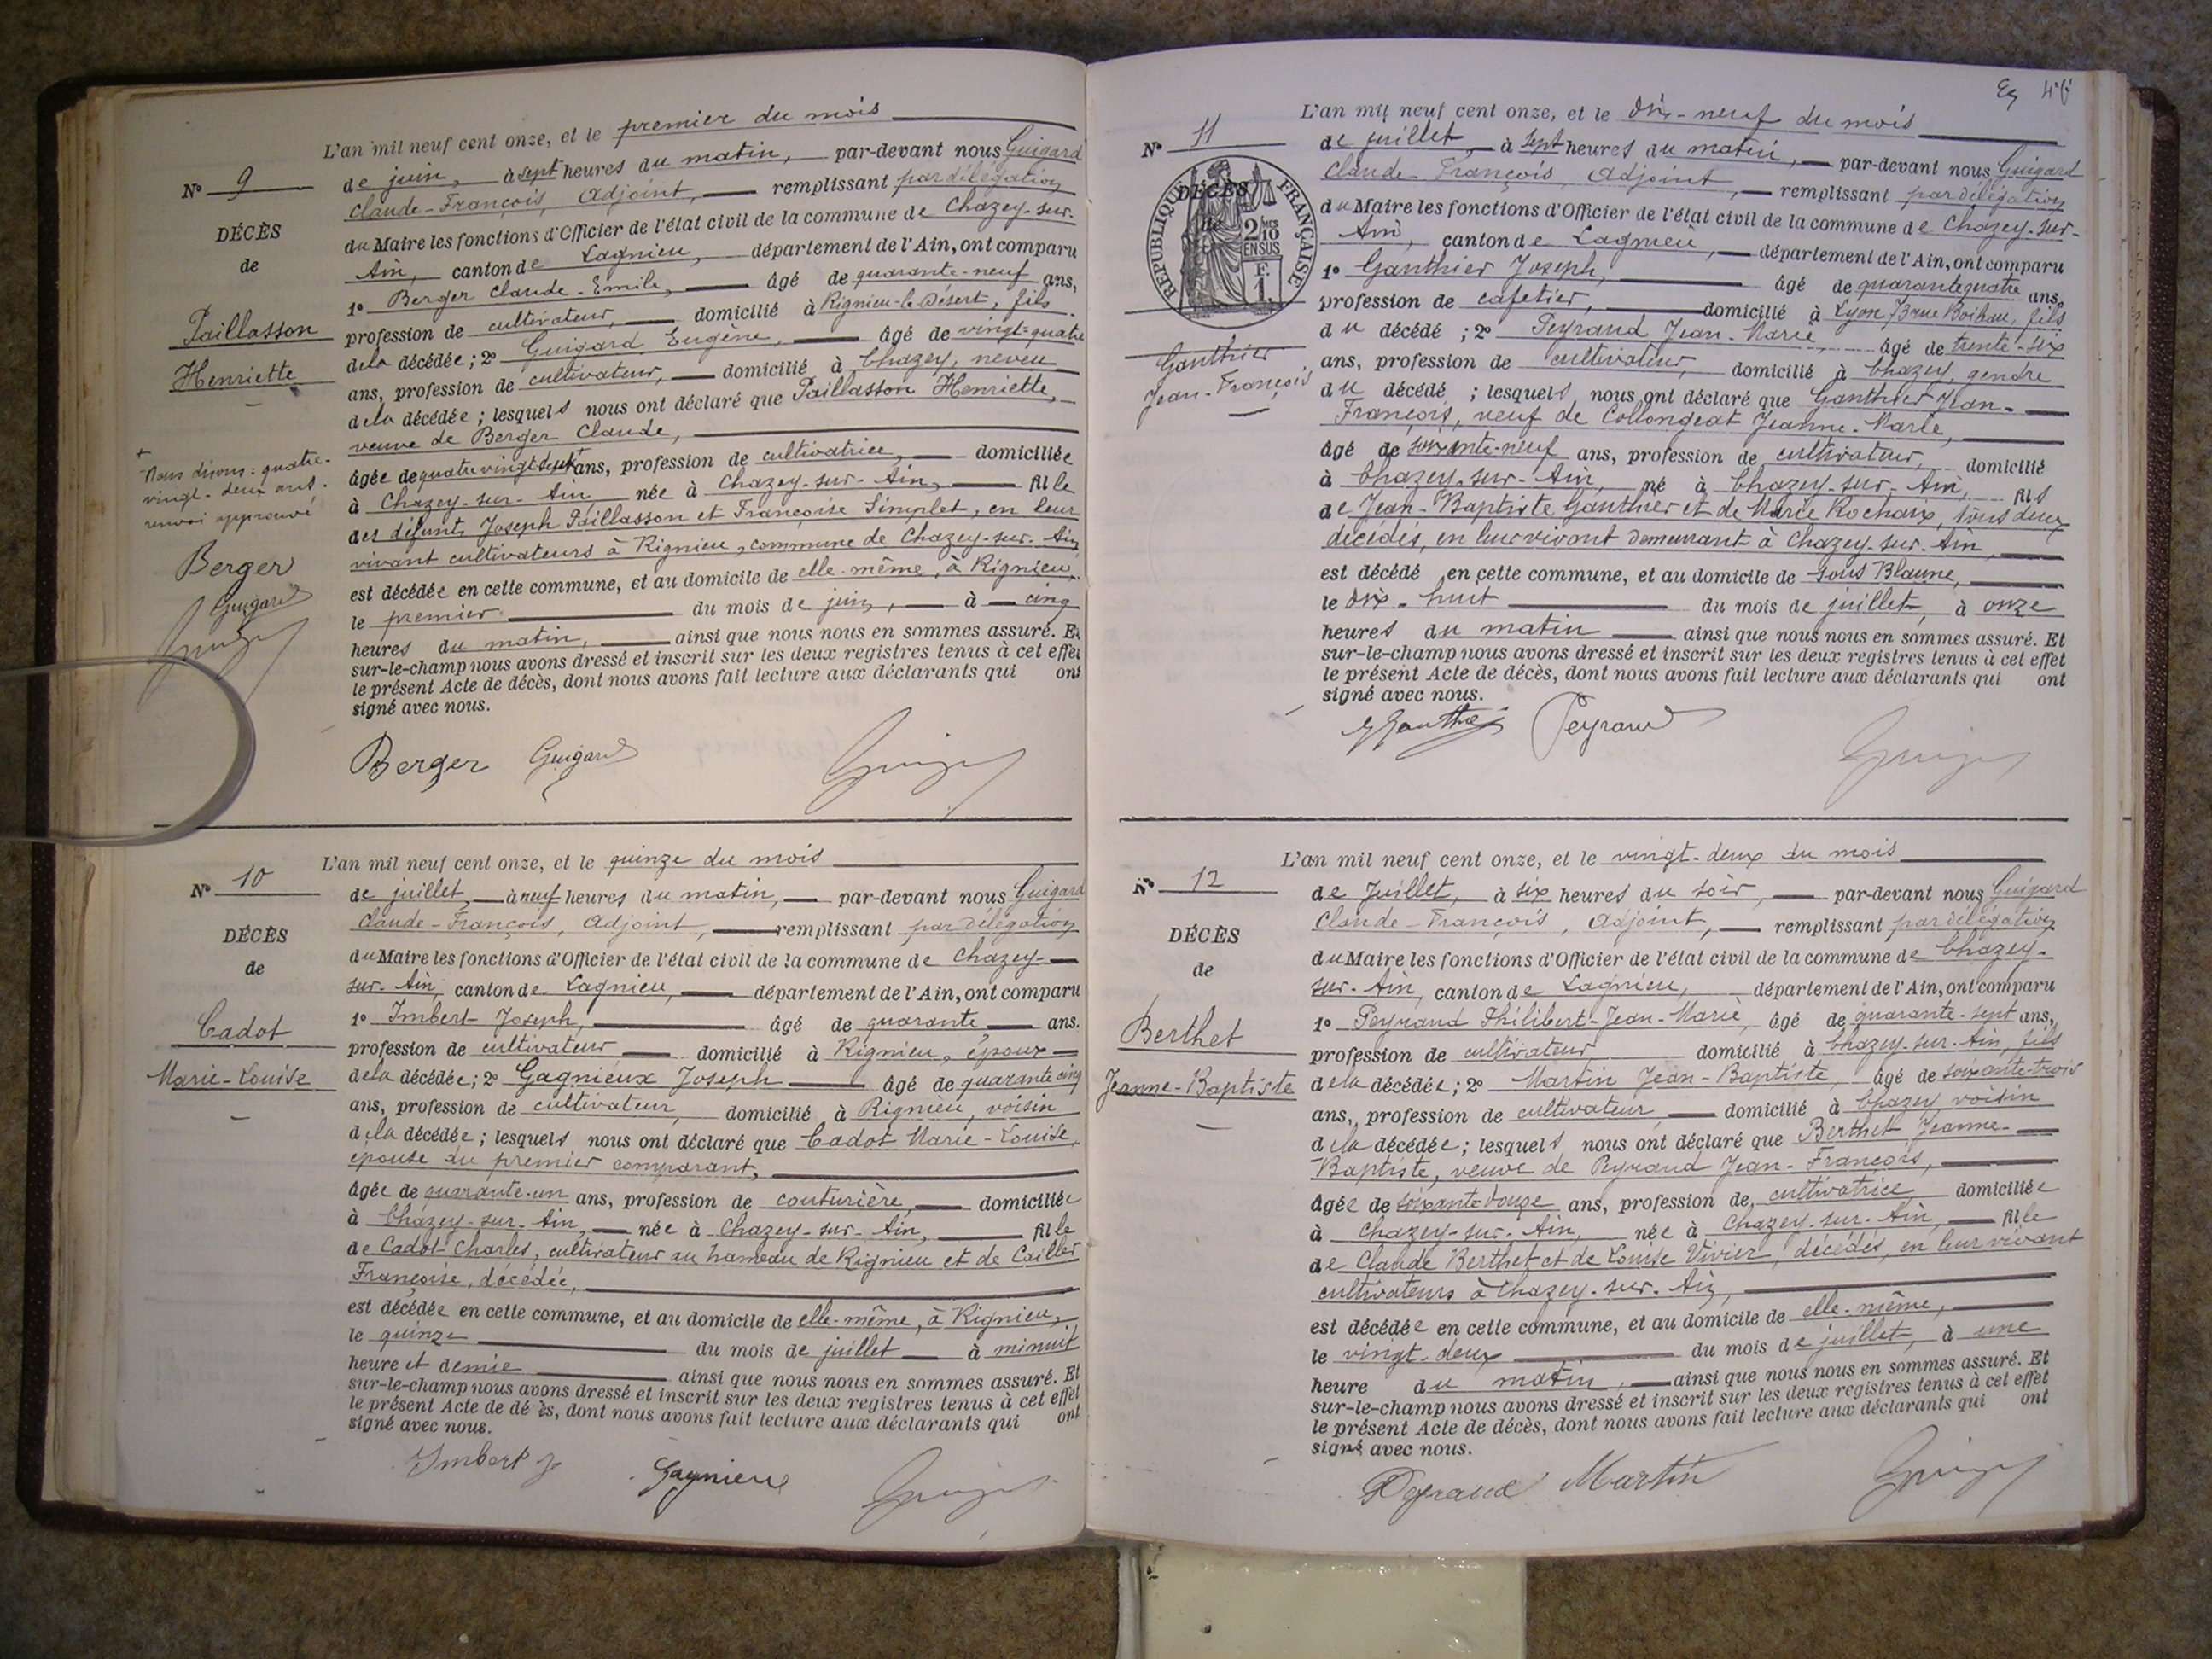 L'an mil neuf cent onze, et le premier du mois
Nº 9
de juin, à sept heures du matin, par-devant nous Guigard
Claude-François, Adjoint, remplissant par délégation
DÉCÈS
du Maire les fonctions d'Officier de l'état civil de la commune de Chazey-sur-
de
Ain, canton de Lagnieu, département de l'Ain, ont comparu
1º Berger Claude-Emile, âgé de quarante-neuf ans,
Paillasson
profession de cultivateur, domicilié à Rignieu-le-Désert, fils
Henriette
de la décédée; 2º Guigard Eugène, âgé de vingt-quatre
ans, profession de cultivateur, domicilié à Chazey, neveu
de la décédée; lesquels nous ont déclaré que Paillasson Henriette,
veuve de Berger Claude,
âgée de quatre vingt ans, profession de cultivatrice, domiciliée
à Chazey-sur-Ain, née à Chazey-sur-Ain, fille
des défunts Joseph Paillasson et Françoise Simplet, en leur
vivant cultivateurs à Rignieu, commune de Chazey-sur-Ain
est décédée en cette commune, et au domicile de elle-même, à Rignieu,
le premier du mois de juin, à cinq
heures du matin, ainsi que nous nous en sommes assuré. Et
sur-le-champ nous avons dressé et inscrit sur les deux registres tenus à cet effet
le présent Acte de décès, dont nous avons fait lecture aux déclarants qui ont
signé avec nous.
+
Nous disons: quatre-
vingt-deux ans.
renvoi approuvé
Berger
Guigard
Berger Guigard
L'an mil neuf cent onze, et le quinze du mois
Nº 10
de juillet, à neuf heures du matin, par-devant nous Guigard
Claude-François, Adjoint, remplissant par délégation
DÉCÈS
du Maire les fonctions d'Officier de l'état civil de la commune de Chazey-
de
sur-Ain, canton de Lagnieu, département de l'Ain, ont comparu
Cadot
1º Imbert Joseph, âgé de quarante ans.
profession de cultivateur domicilié à Rignieu, époux
Marie-Louise
de la décédée; 2º Gagnieux Joseph âgé de quarante cinq
ans, profession de cultivateur, domicilié à Rignieu, voisin
de la décédée; lesquels nous ont déclaré que Cadot Marie-Louise,
épouse du premier comparant,
âgée de quarante-un ans, profession de couturière, domiciliée
à Chazey-sur-Ain, née à Chazey-sur-Ain, fille
de Cadot Charles, cultivateur au hameau de Rignieu et de Caillet
Françoise, décédée,
est décédée en cette commune, et au domicile de elle-même, à Rignieu,
le quinze du mois de juillet à minuit
heure et demie ainsi que nous nous en sommes assuré. Et
sur-le-champ nous avons dressé et inscrit sur les deux registres tenus à cet effet
le présent Acte de dé ès, dont nous avons fait lecture aux déclarants qui ont
signé avec nous.
Imbert J Gagnieux
L'an mil neuf cent onze, et le dix-neuf du mois
Nº 11
de juillet, à sept heures du matin, par-devant nous Guigard
Claude-François, Adjoint, remplissant par délégation
DÉCÈS
de
RÉPUBLIQUE FRANÇAISE
2/10
EN SUS
F.
1.
du Maire les fonctions d'Officier de l'état civil de la commune de Chazey-sur-
Ain, canton de Lagnieu, département de l'Ain, ont comparu
1º Ganthier Joseph, âgé de quarante quatre ans,
profession de cafetier, domicilié à Lyon, fils
du décédé; 2º Peyraud Jean-Marie, âgé de trente-six
Ganthier
Jean-François
ans, profession de cultivateur, domicilié à Chazey, gendre
du décédé; lesquels nous ont déclaré que Ganthier Jean-
François, veuf de Collongeat Jeanne-Marie,
âgé de soixante-neuf ans, profession de cultivateur, domicilié
à Chazey-sur-Ain, né à Chazey-sur-Ain, fils
de Jean-Baptiste Ganthier et de Marie Rochaix, tous deux
décédés, en leur vivant demeurant à Chazey-sur-Ain,
est décédé en cette commune, et au domicile de sous Blanne,
le dix-huit du mois de juillet, à onze
heures du matin ainsi que nous nous en sommes assuré. Et
sur-le-champ nous avons dressé et inscrit sur les deux registres tenus à cet effet
le présent Acte de décès, dont nous avons fait lecture aux déclarants qui ont
signé avec nous.
Peyraud
L'an mil neuf cent onze, et le vingt-deux du mois
Nº 12
de Juillet, à six heures du soir, par-devant nous Guigard
Claude-François, Adjoint, remplissant par délégation
DÉCÈS
du Maire les fonctions d'Officier de l'état civil de la commune de Chazey-
de
sur-Ain, canton de Lagnieu, département de l'Ain, ont comparu
Berthet
1º Peyraud Philibert-Jean-Marie, âgé de quarante-sept ans,
profession de cultivateur domicilié à Chazey-sur-Ain, fils
Jeanne-Baptiste
de la décédée; 2º Martin Jean-Baptiste, âgé de soixante-trois
ans, profession de cultivateur domicilié à Chazey voisin
de la décédée; lesquels nous ont déclaré que Berthet Jeanne-
Baptiste, veuve de Peyraud Jean-François,
âgée de soixante-douze ans, profession de cultivatrice domiciliée
à Chazey-sur-Ain, née à Chazey-sur-Ain, fille
de Claude Berthet et de Louise Vivier, décédés, en leur vivant
cultivateurs à Chazey-sur-Ain,
est décédée en cette commune, et au domicile de elle-même,
le vingt-deux du mois de juillet, à une
heure du matin, ainsi que nous nous en sommes assuré. Et
sur-le-champ nous avons dressé et inscrit sur les deux registres tenus à cet effet
le présent Acte de décès, dont nous avons fait lecture aux déclarants qui ont
signé avec nous.
Peyraud Martin